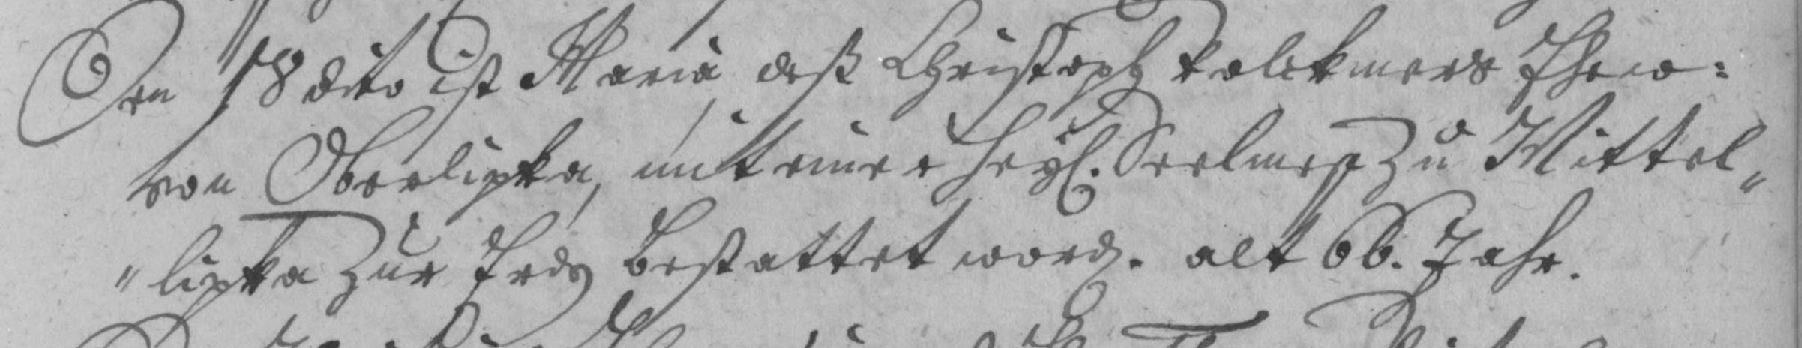 Den 18 dito ist Maria, deß Christoph Volckmers Ehew:
von Oberlipka, mit einer heyl. Seelmeß zu Mittel„
„lipka zur Erden bestattet word. alt 66. Jahr.